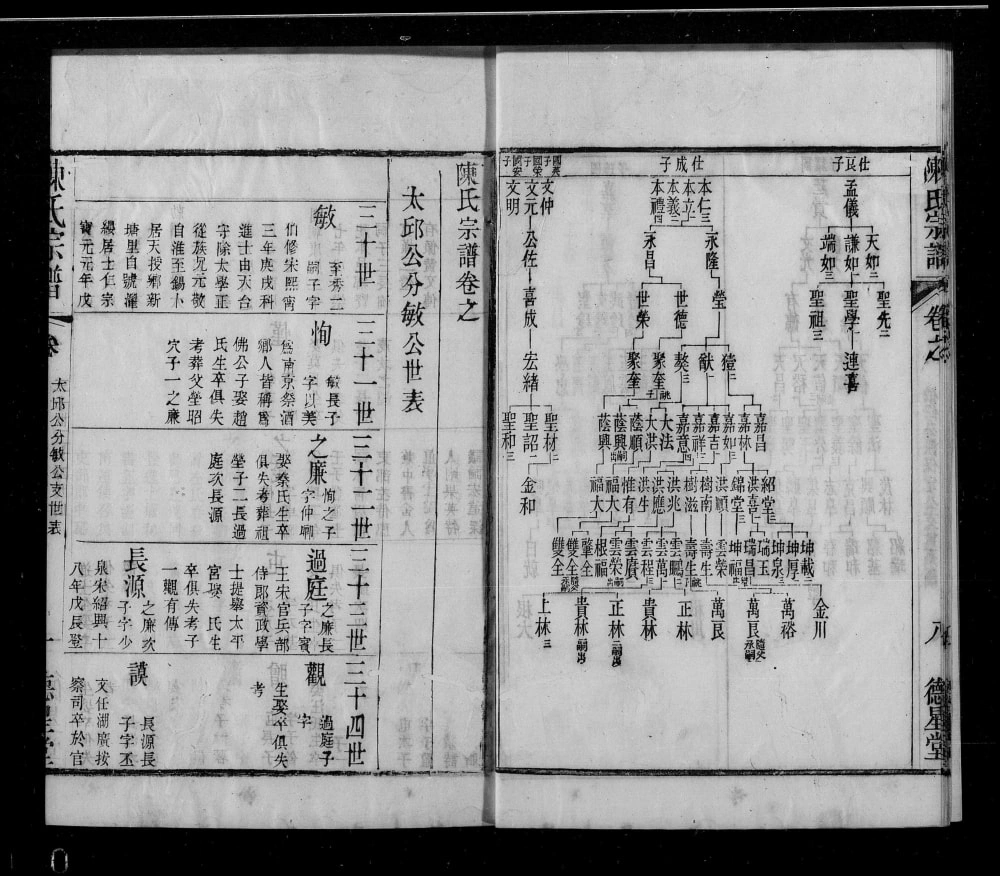 陳氏宗譜
卷之
八
德星堂
仕良子
孟儀
天如二
謙如一
端如三
聖先二
聖學一
聖祖三
連喜
仕成子
本仁三
本立二
本義三
本禮四
永隆
永昌
瑩
世德
世榮
獃二
獒三
聚奎
聚奎
嘉昌
嘉林二
嘉如三
嘉吉
嘉祥二
嘉意四
大法
大洪
蔭順
蔭興
蔭興
紹堂三
洪喜
錦堂三
洪順
樹南
樹滋
洪兆
洪應
洪生
惟有
福大
福大
坤載三
坤厚
坤泉
瑞玉
瑞昌
坤福
雲榮
壽生
壽生
雲鵬三
雲萬
雲程三
雲賡
雲榮
根福
肇全
雙全
雙全
金川
萬裕
萬良
萬良
正林
貴林
正林
貴林
上林三
文仲
文元
文明
公佐
喜成
宏緒
聖材二
聖詔
聖和三
金和
陳氏宗譜卷之
太邱公分敏公世表
三十世
敏
至秀二
嗣子字
伯修宋熙甯
三年庚戌科
進士由天台
字除太學正
從族兄元敬
自淮至錫卜
居天授鄉新
塘里自號濯
纓居士仁宗
寶元元年戊
三十一世
恂
敏長子
字以美
爲南京祭酒
鄉人皆稱爲
佛公子娶趙
氏生卒俱失
考葬父塋昭
穴子一之廉
三十二世
之廉
恂之子
字仲卿
娶秦氏生卒
俱失考葬祖
塋子二長過
庭次長源
三十三世
過庭
之廉長
子字賓
王宋官兵部
侍郎資政學
士提舉太平
宮娶 氏生
卒俱失考子
一觀有傳
長源
之廉次
子字少
泉宋紹興十
八年戊辰登
三十四世
觀
過庭子
字
生娶卒俱失
考
謨
長源長
子字丕
文任湖廣按
察司卒於官
陳氏宗譜
卷
太邱公分敏公支世表
一
德星堂